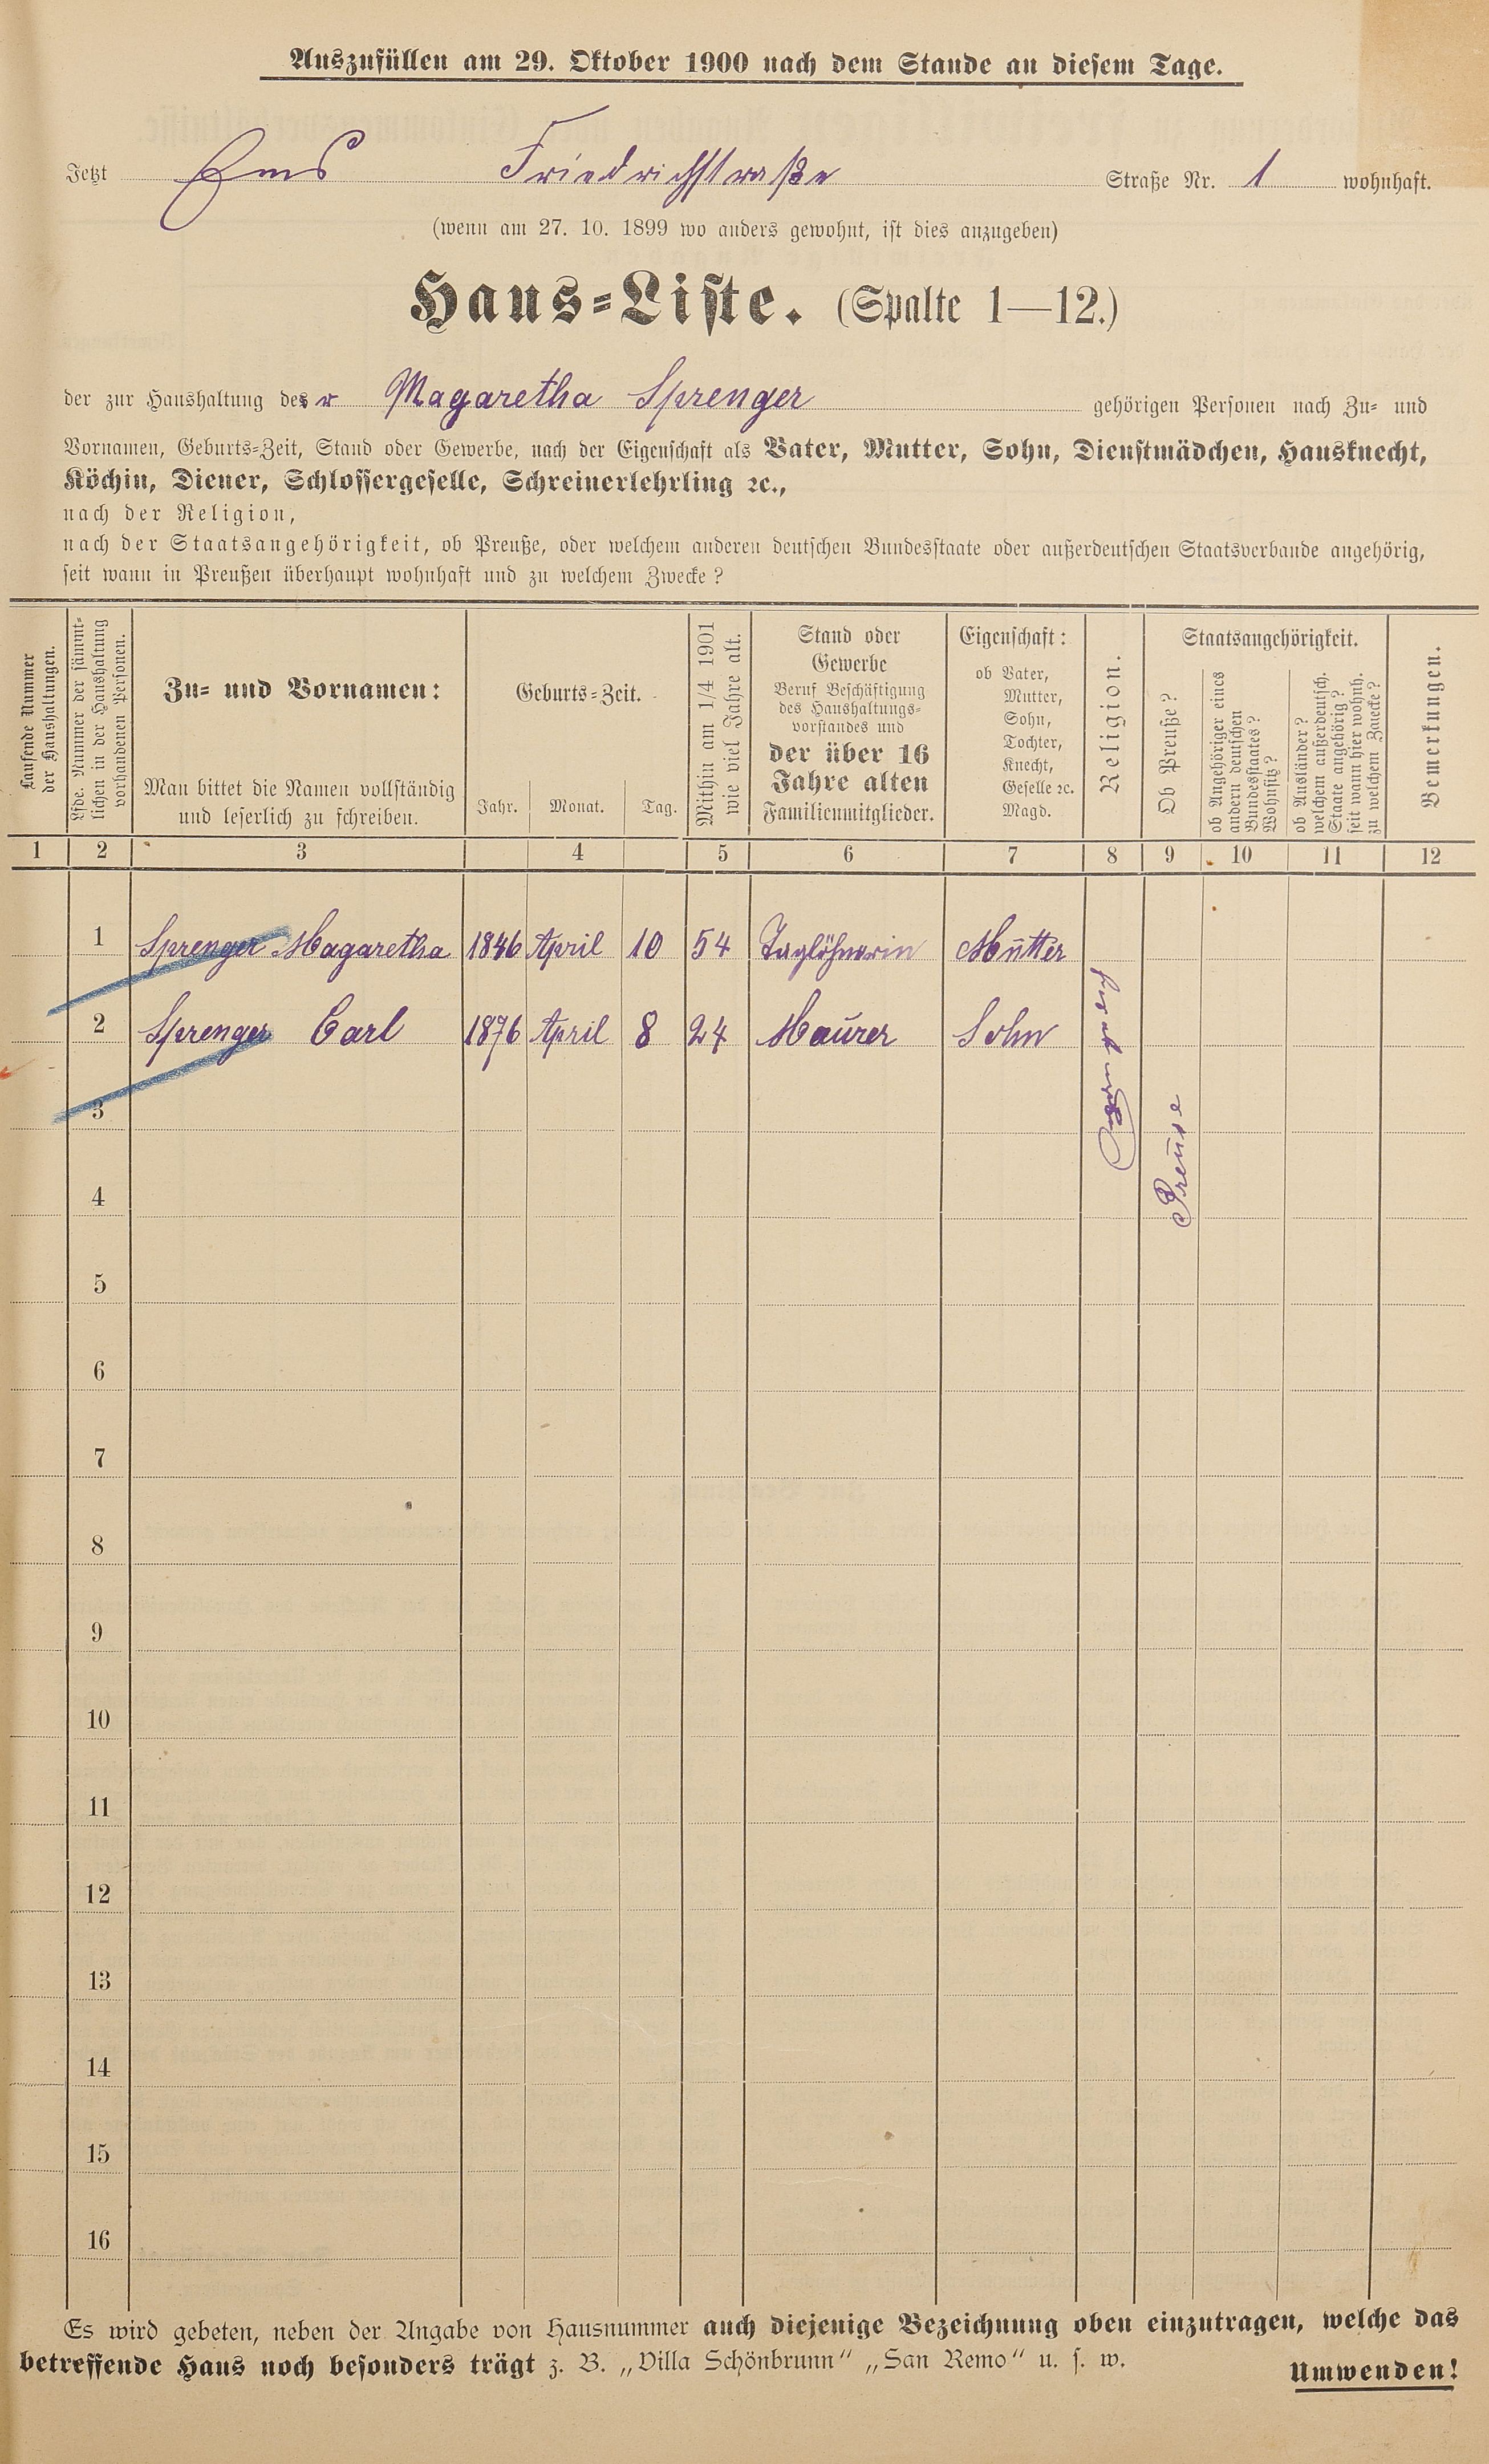 Auszufüllen am 29. Oktober 1900 nach dem Stande an diesem Tage.
Jetzt Ems Friedrichstraße Straße Nr. 1 wohnhaft.
(wenn am 27. 10. 1899 wo anders gewohnt, ist dies anzugeben)
Haus-Liste. (Spalte 1—12.)
der zur Haushaltung des r Magaretha Sprenger gehörigen Personen nach Zu- und
Vornamen, Geburts-Zeit, Stand oder Gewerbe, nach der Eigenschaft als Vater, Mutter, Sohn, Dienstmädchen, Hausknecht,
Köchin, Diener, Schlossergeselle, Schreinerlehrling ꝛc.,
nach der Religion,
nach der Staatsangehörigkeit, ob Preuße, oder welchem anderen deutschen Bundesstaate oder außerdeutschen Staatsverbande angehörig,
seit wann in Preußen überhaupt wohnhaft und zu welchem Zwecke?
Laufende Nummer
der Haushaltungen.
Lfde. Nummer der sämmt-
lichen in der Haushaltung
vorhandenen Personen.
Zu- und Vornamen:
Man bittet die Namen vollständig
und leserlich zu schreiben.
Geburts-Zeit.
Jahr. Monat. Tag.
Mithin am 1/4 1901
wie viel Jahre alt.
Stand oder
Gewerbe
Beruf Beschäftigung
des Haushaltungs-
vorstandes und
der über 16
Jahre alten
Familienmitglieder.
Eigenschaft:
ob Vater,
Mutter,
Sohn,
Tochter,
Knecht,
Geselle ꝛc.
Magd.
Religion.
Staatsangehörigkeit.
Ob Preuße?
ob Angehöriger eines
andern deutschen
Bundesstaates?
Wohnsitz?
ob Ausländer?
welchem außerdeutsch.
Staate angehörig?
seit wann hier wohnh.
zu welchem Zwecke?
Bemerkungen.
1 2 3 4 5 6 7 8 9 10 11 12
1 Sprenger Magaretha 1846 April 10 54 Taglöhnerin Mutter
2 Sprenger Carl 1876 April 8 24 Maurer Sohn
Preuse
3
4
5
6
7
8
9
10
11
12
13
14
15
16
Es wird gebeten, neben der Angabe von Hausnummer auch diejenige Bezeichnung oben einzutragen, welche das
betreffende Haus noch besonders trägt z. B. „Villa Schönbrunn“ „San Remo“ u. s. w.
Umwenden!